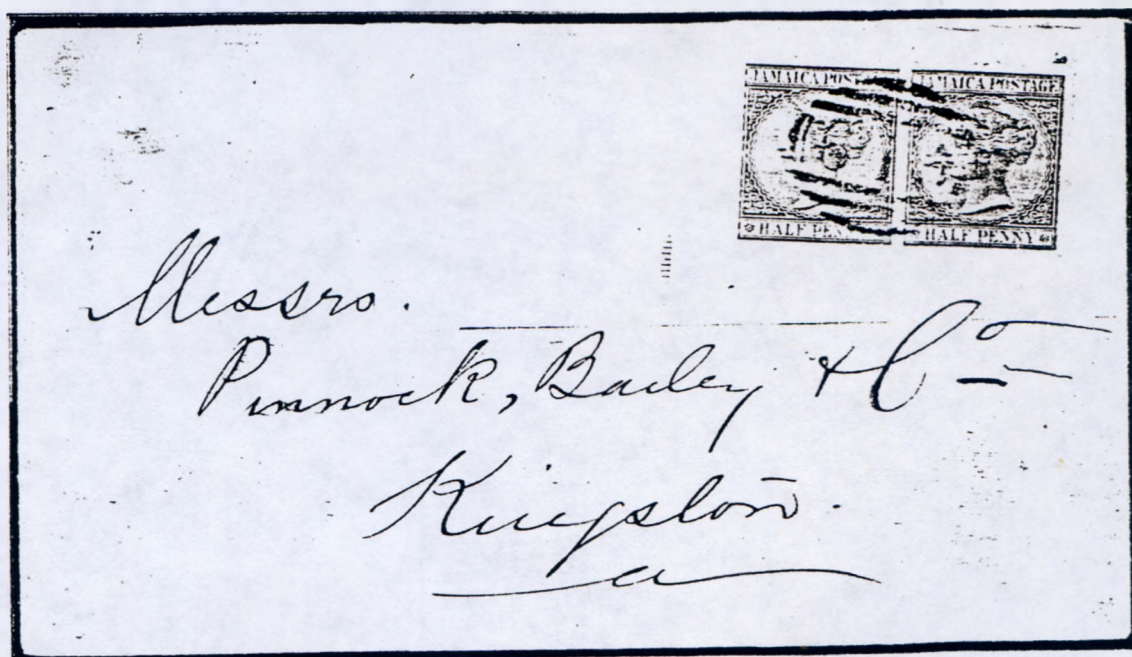 JAMAICA POST JAMAICA POSTAGE
HALF PENN HALF PENNY
Messrs.
Pinnock, Bailey & Co
Kingston.